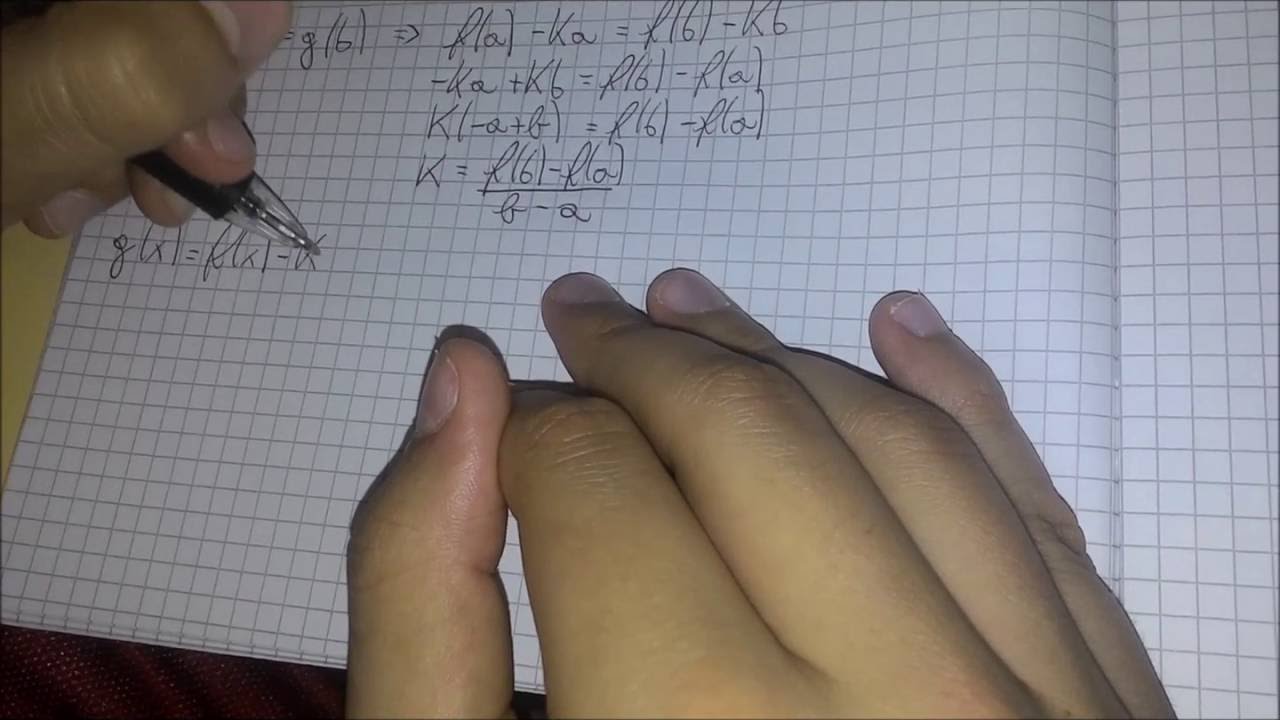 = g(b) => f(a) - Ka = f(b) - Kb
-Ka + Kb = f(b) - f(a)
K(-a+b) = f(b) - f(a)
K = f(b) - f(a)
b - a
g(x) = f(x) - K